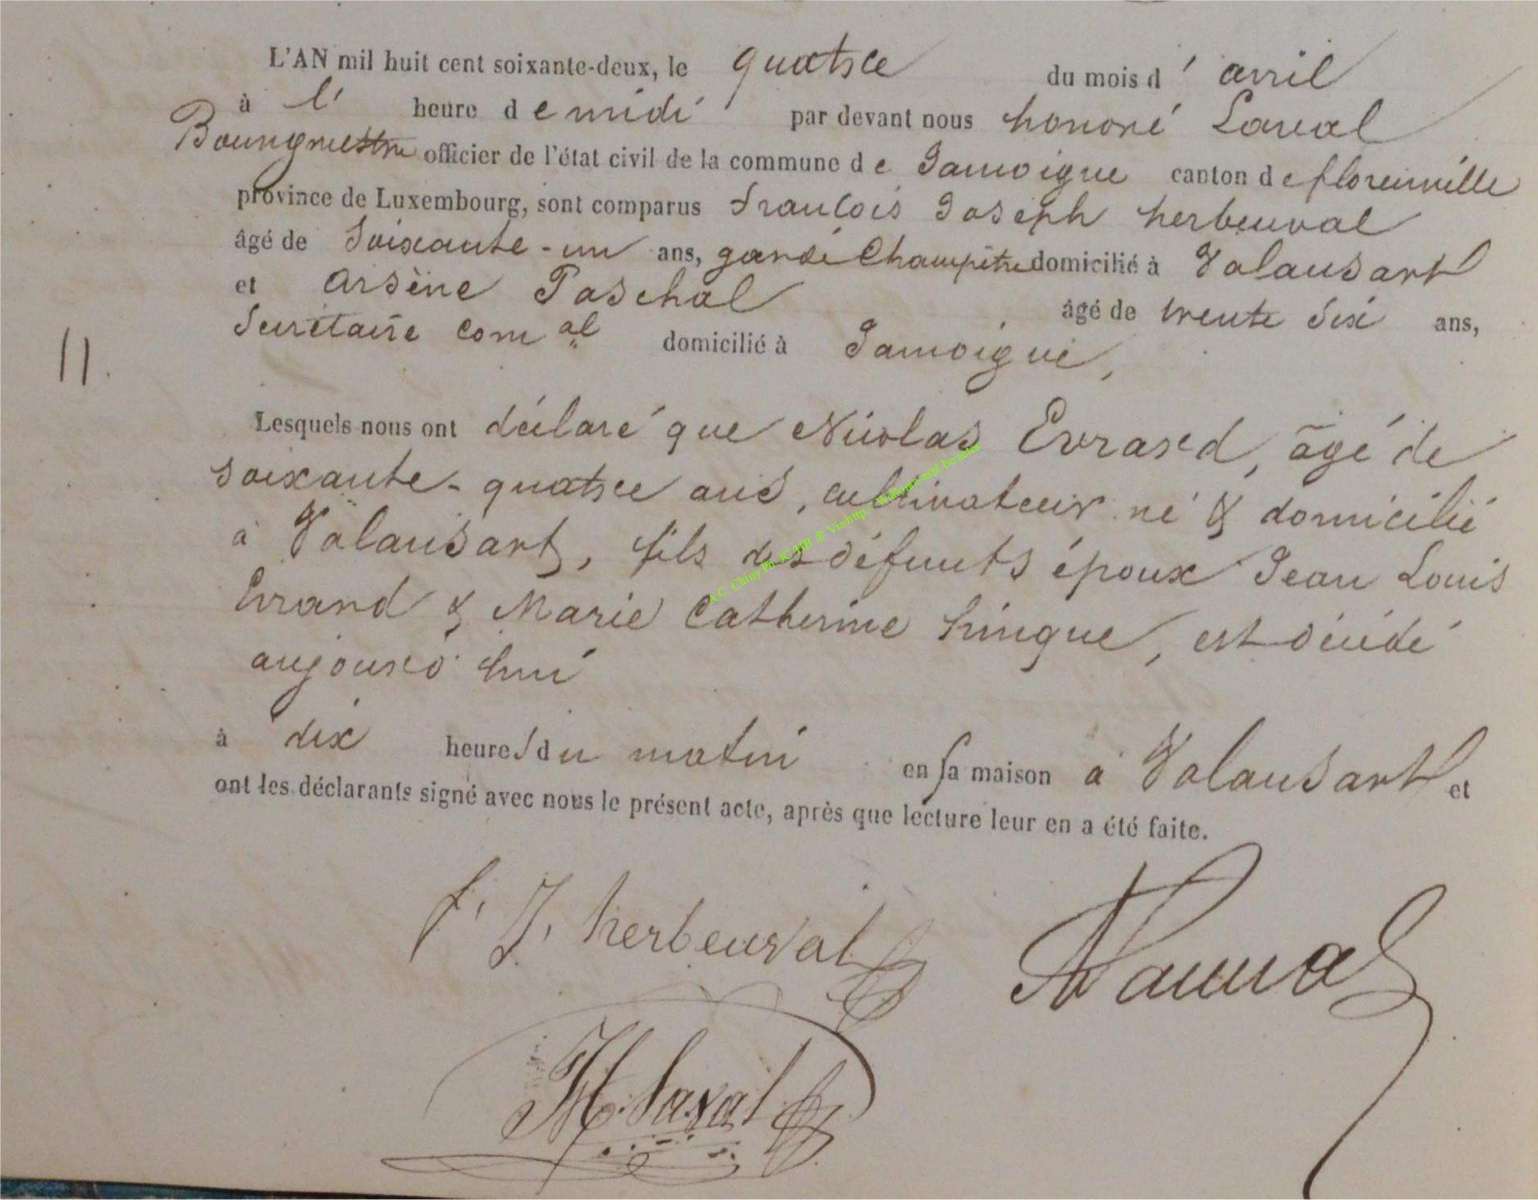 L'AN mil huit cent soixante-deux, le quatre du mois d' avril
à l' heure de midi par devant nous honoré Laval
Bourgmestre officier de l'état civil de la commune de Jamoigne canton de florenville
province de Luxembourg, sont comparus françois Joseph herbeuval
âgé de Soixante-un ans, garde Champêtre domicilié à Valansart
et Arsène Paschal âgé de trente six ans,
Secrétaire com al domicilié à Jamoigne,
11.
Lesquels nous ont déclaré que Nicolas Evrard, âgé de
soixante-quatre ans, cultivateur né & domicilié
à Valansart, fils des défunts époux Jean Louis
Evrard & Marie Catherine hinque, est décédé
aujourd'hui
à dix heures du matin en sa maison à Valansart et
ont les déclarants signé avec nous le présent acte, après que lecture leur en a été faite.
f. J. herbeuval
H. Laval